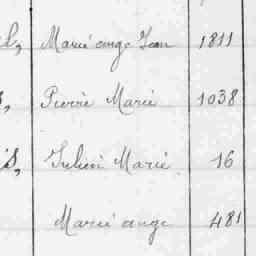 Marie ange Jean 1811
Pierre Marie 1038
Julien Marie 16
Marie ange 481